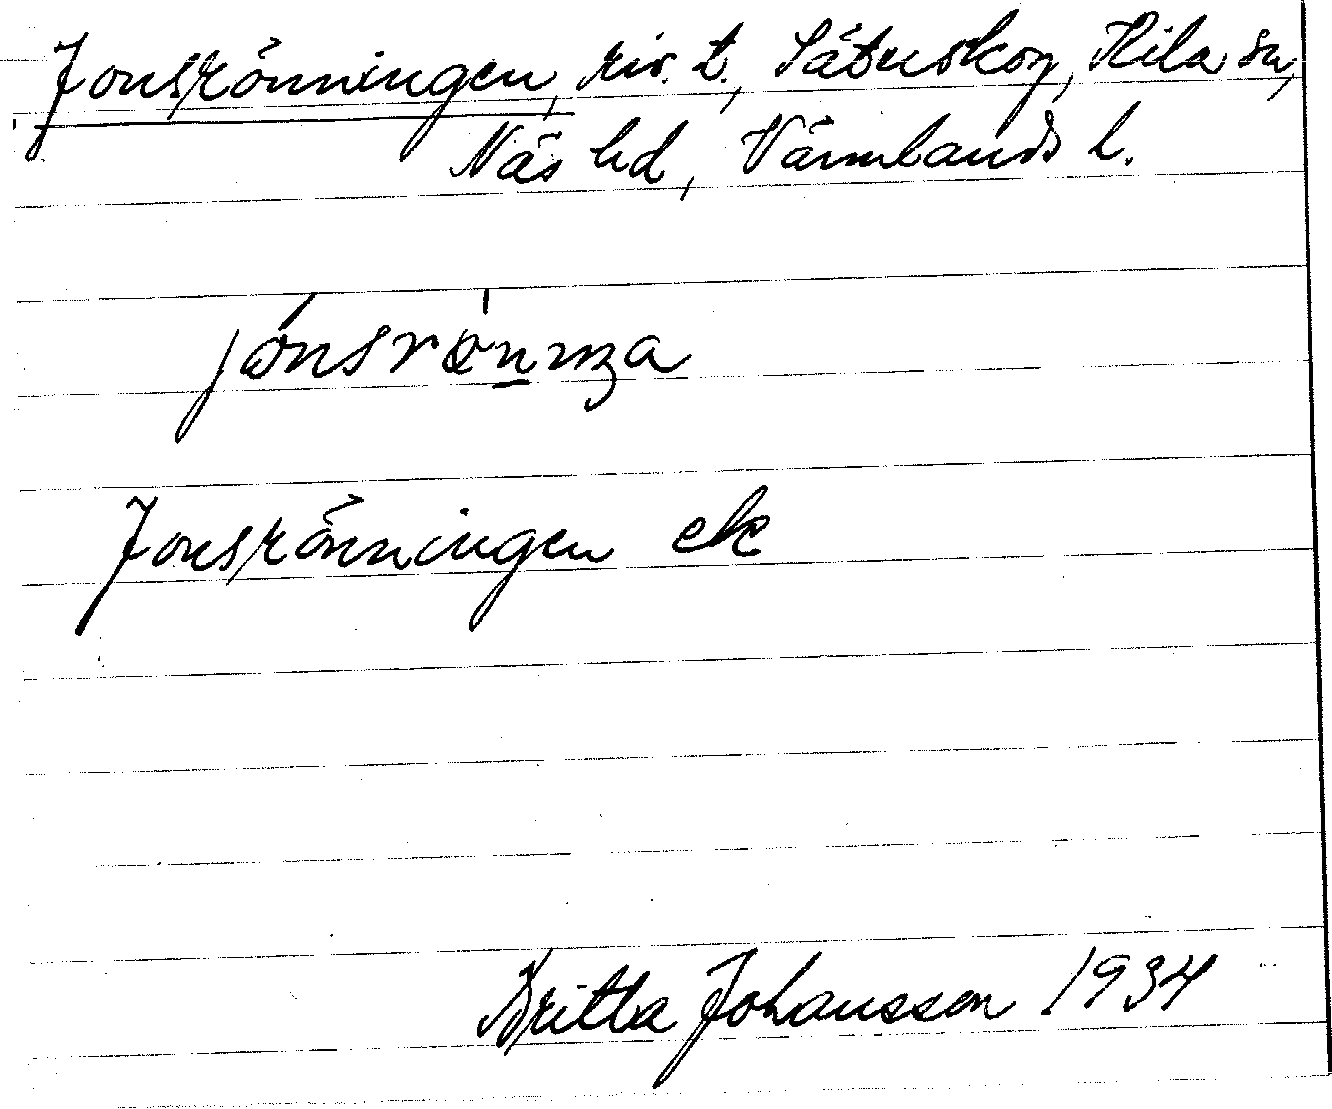 Jonsrönningen, riv. t., Sätuskog, Kila sn,
Näs hd, Värmlands l.
jònsrønn̲ıŋa
Jonsrönningen ek
Britta Johansson 1934